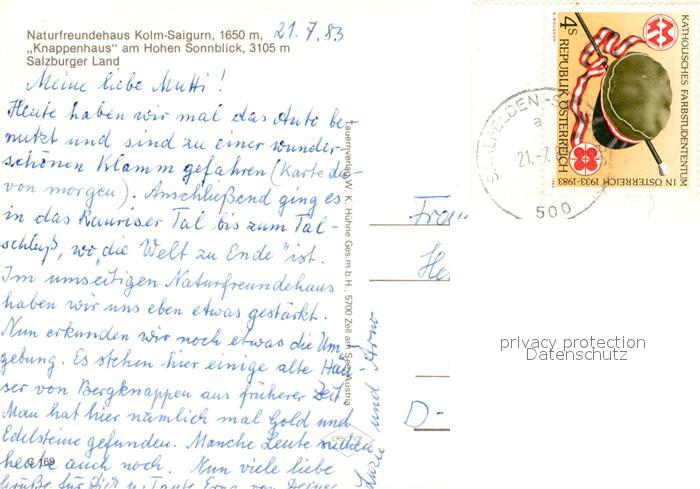 Naturfreundehaus Kolm-Saigurn, 1650 m,
„Knappenhaus" am Hohen Sonnblick, 3105 m
Salzburger Land
21.7.83
Meine liebe Mutti!
Heute haben wir mal das Auto be-
nutzt und sind zu einer wunder-
schönen Klamm gefahren (Karte da-
von morgen). Anschließend ging es
in das Rauriser Tal bis zum Tal-
schluß, wo „die Welt zu Ende" ist.
Im umseitigen Naturfreundehaus
haben wir uns eben etwas gestärkt.
Nun erkunden wir noch etwas die Um-
gebung. Es stehen hier einige alte Häu-
ser von Bergknappen aus früherer Zeit.
Man hat hier nämlich mal Gold und
Edelsteine gefunden. Manche Leute suchen
heute auch noch. Nun viele liebe
Grüße für Dich u. Tante Erna von Deiner
und Arno
C 169
Tauernverlag W. K. Hühne Ges.m.b.H., 5700 Zell am See/Austria
Frau
He
D-
4s
REPUBLIK ÖSTERREICH
KATHOLISCHES FARBSTUDENTENTUM
IN ÖSTERREICH 1933-1983
21.-7.
500
privacy protection
Datenschutz